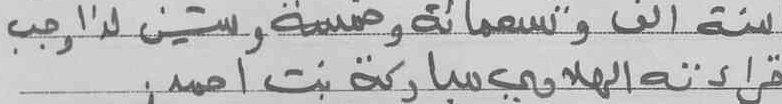 سنة الف وتسعمائة وخمسة وستين لذا وجب
قراءته الهلاوي مباركة بنت احمد.